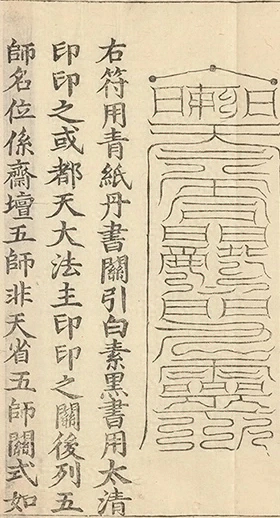 右符用青紙丹書關引白素黑書用太清
印印之或都天大法主印印之關後列五
師名位係齋壇五師非天省五師關式如